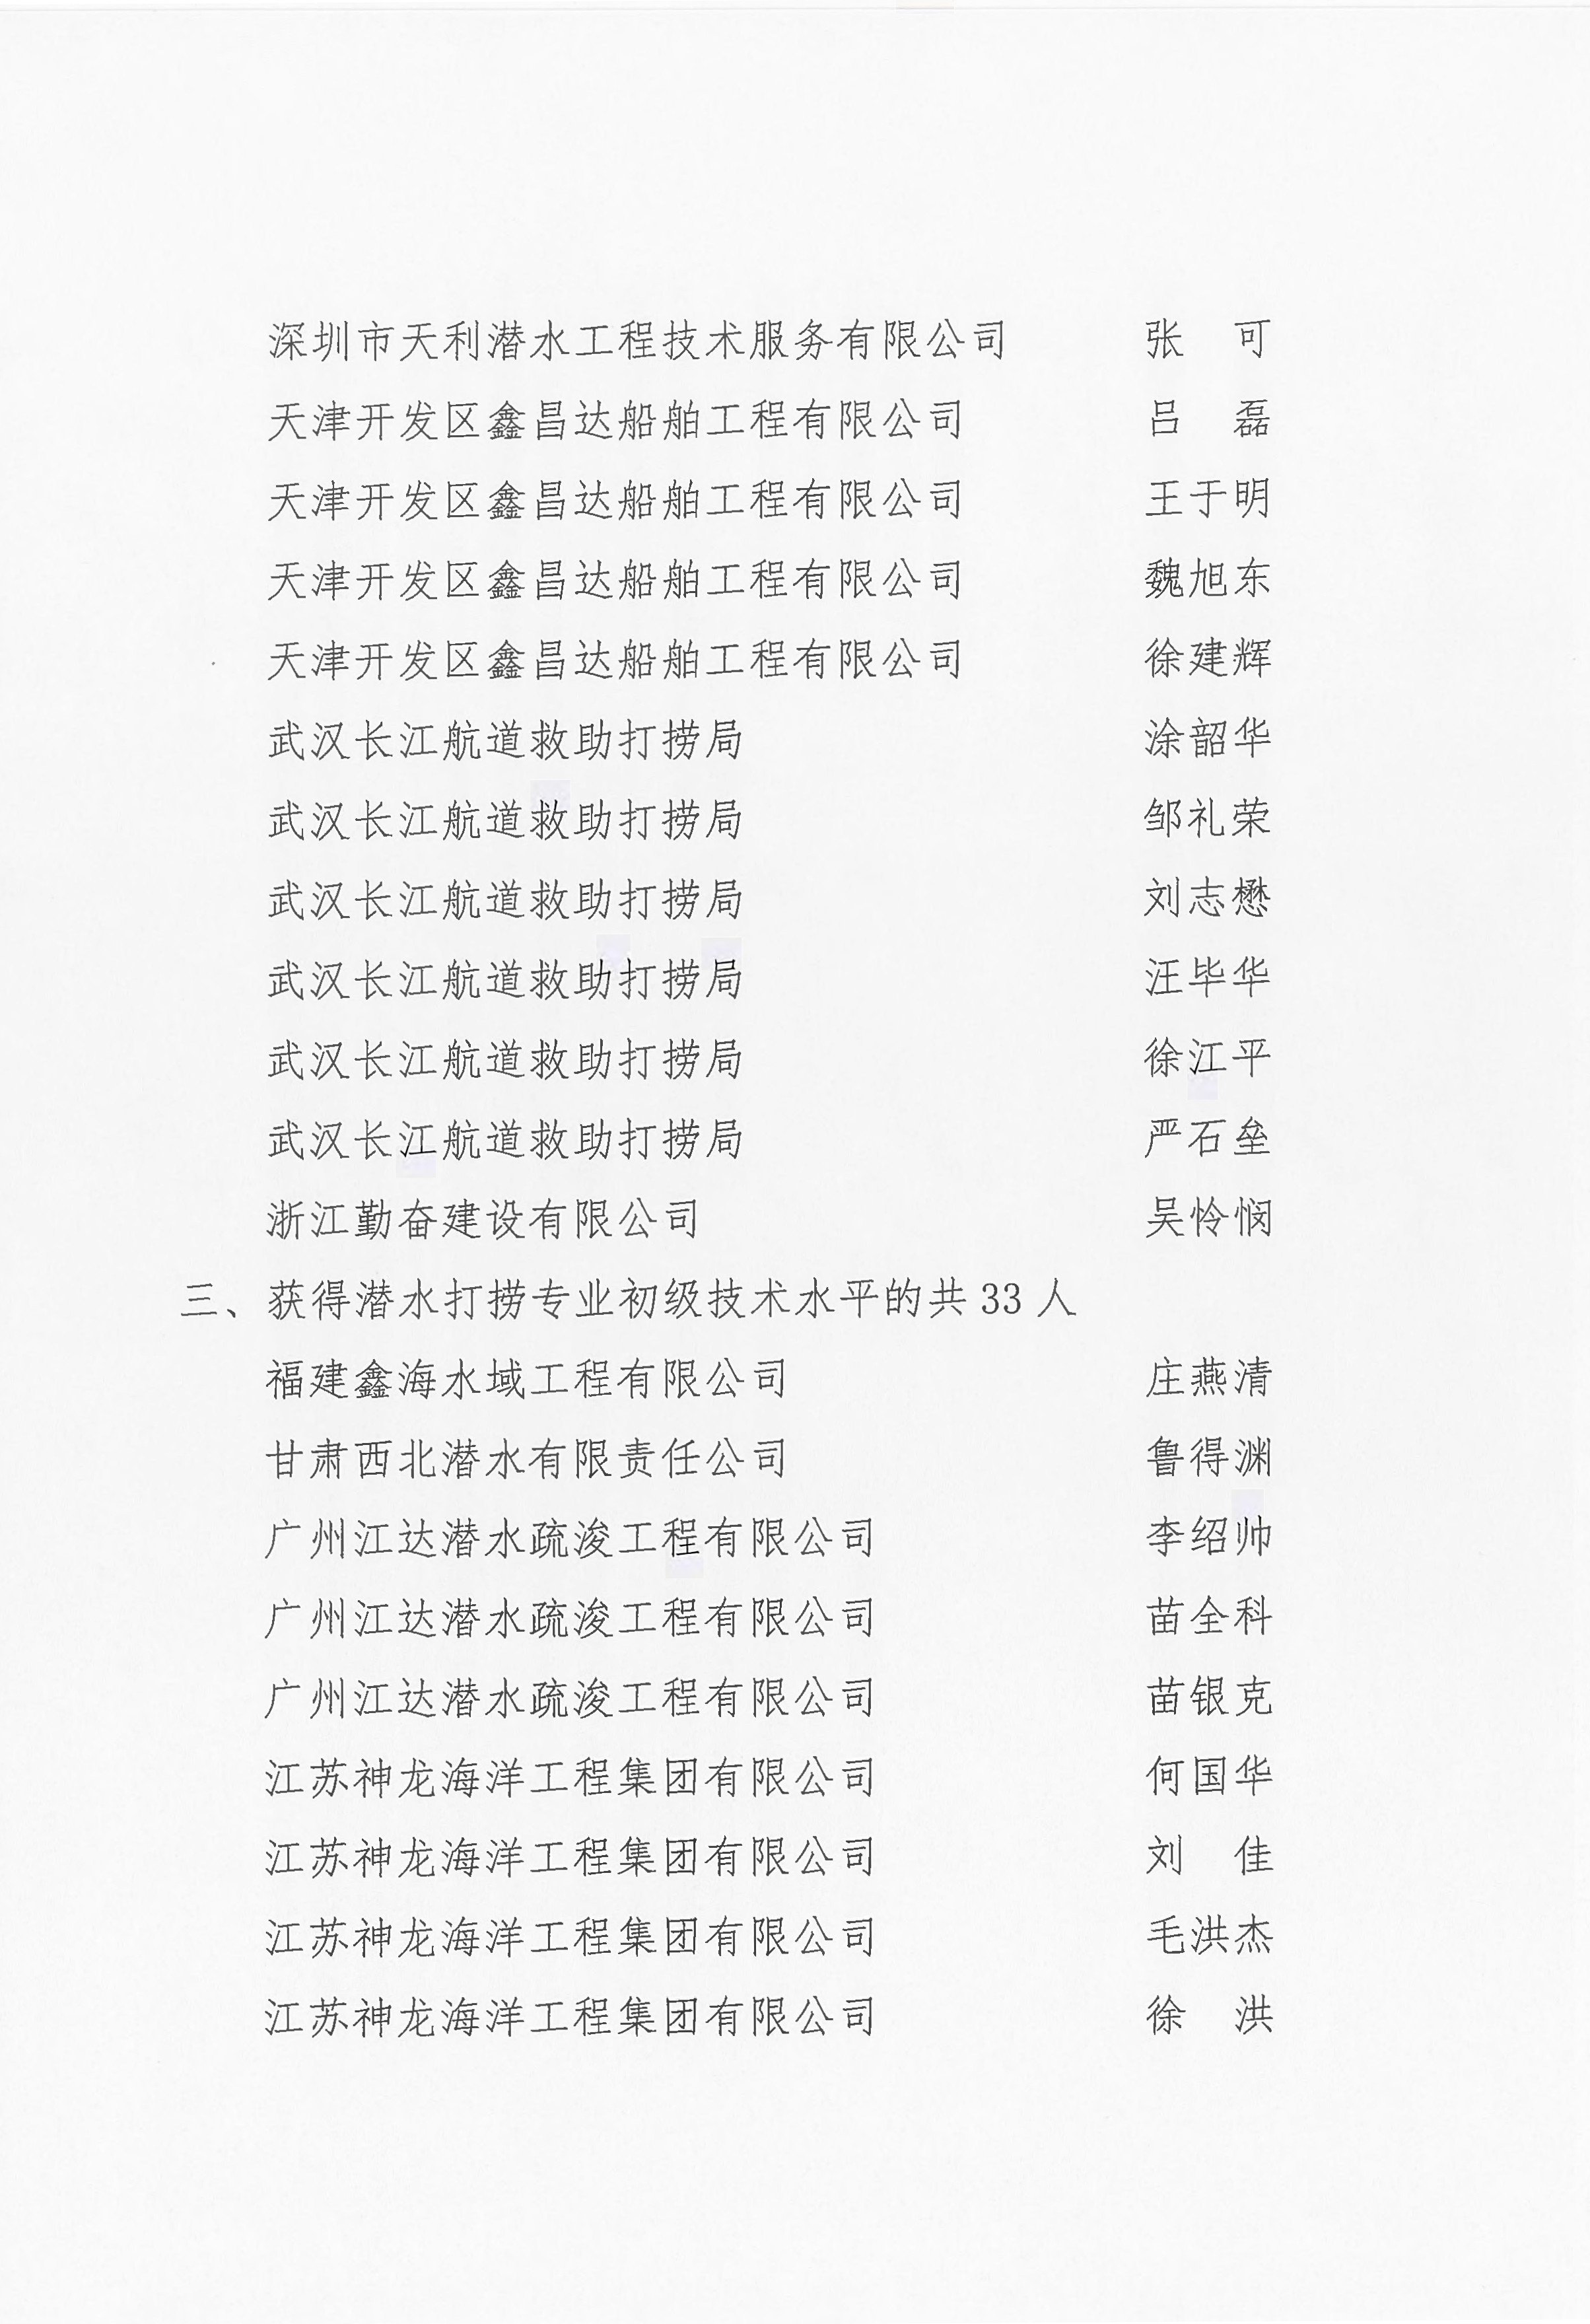 深圳市天利潜水工程技术服务有限公司 张 可
天津开发区鑫昌达船舶工程有限公司 吕 磊
天津开发区鑫昌达船舶工程有限公司 王于明
天津开发区鑫昌达船舶工程有限公司 魏旭东
天津开发区鑫昌达船舶工程有限公司 徐建辉
武汉长江航道救助打捞局 涂韶华
武汉长江航道救助打捞局 邹礼荣
武汉长江航道救助打捞局 刘志懋
武汉长江航道救助打捞局 汪毕华
武汉长江航道救助打捞局 徐江平
武汉长江航道救助打捞局 严石垒
浙江勤奋建设有限公司 吴怜悯
三、获得潜水打捞专业初级技术水平的共 33 人
福建鑫海水域工程有限公司 庄燕清
甘肃西北潜水有限责任公司 鲁得渊
广州江达潜水疏浚工程有限公司 李绍帅
广州江达潜水疏浚工程有限公司 苗全科
广州江达潜水疏浚工程有限公司 苗银克
江苏神龙海洋工程集团有限公司 何国华
江苏神龙海洋工程集团有限公司 刘 佳
江苏神龙海洋工程集团有限公司 毛洪杰
江苏神龙海洋工程集团有限公司 徐 洪